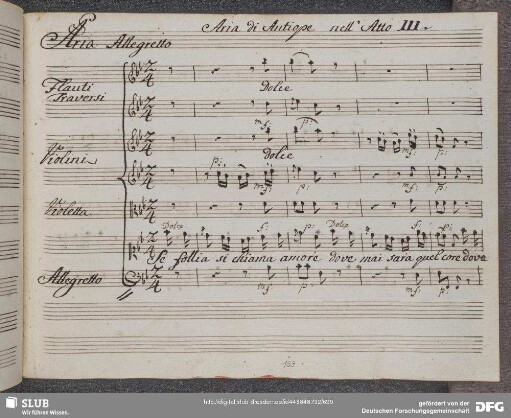 Aria di Antiope nell' Atto III.
Aria Allegretto
Flauti
Traversi
Dolce
mf: p:
Violini
Dolce
p: mf: p: mf: p:
Violetta
Dolce f: p: Dolce f: p:
Se follia si chiama amore dove mai sara quel core dove
Allegretto
mf: p: mf: p:
153
SLUB
Wir führen Wissen.
gefördert von der
Deutschen Forschungsgemeinschaft
DFG